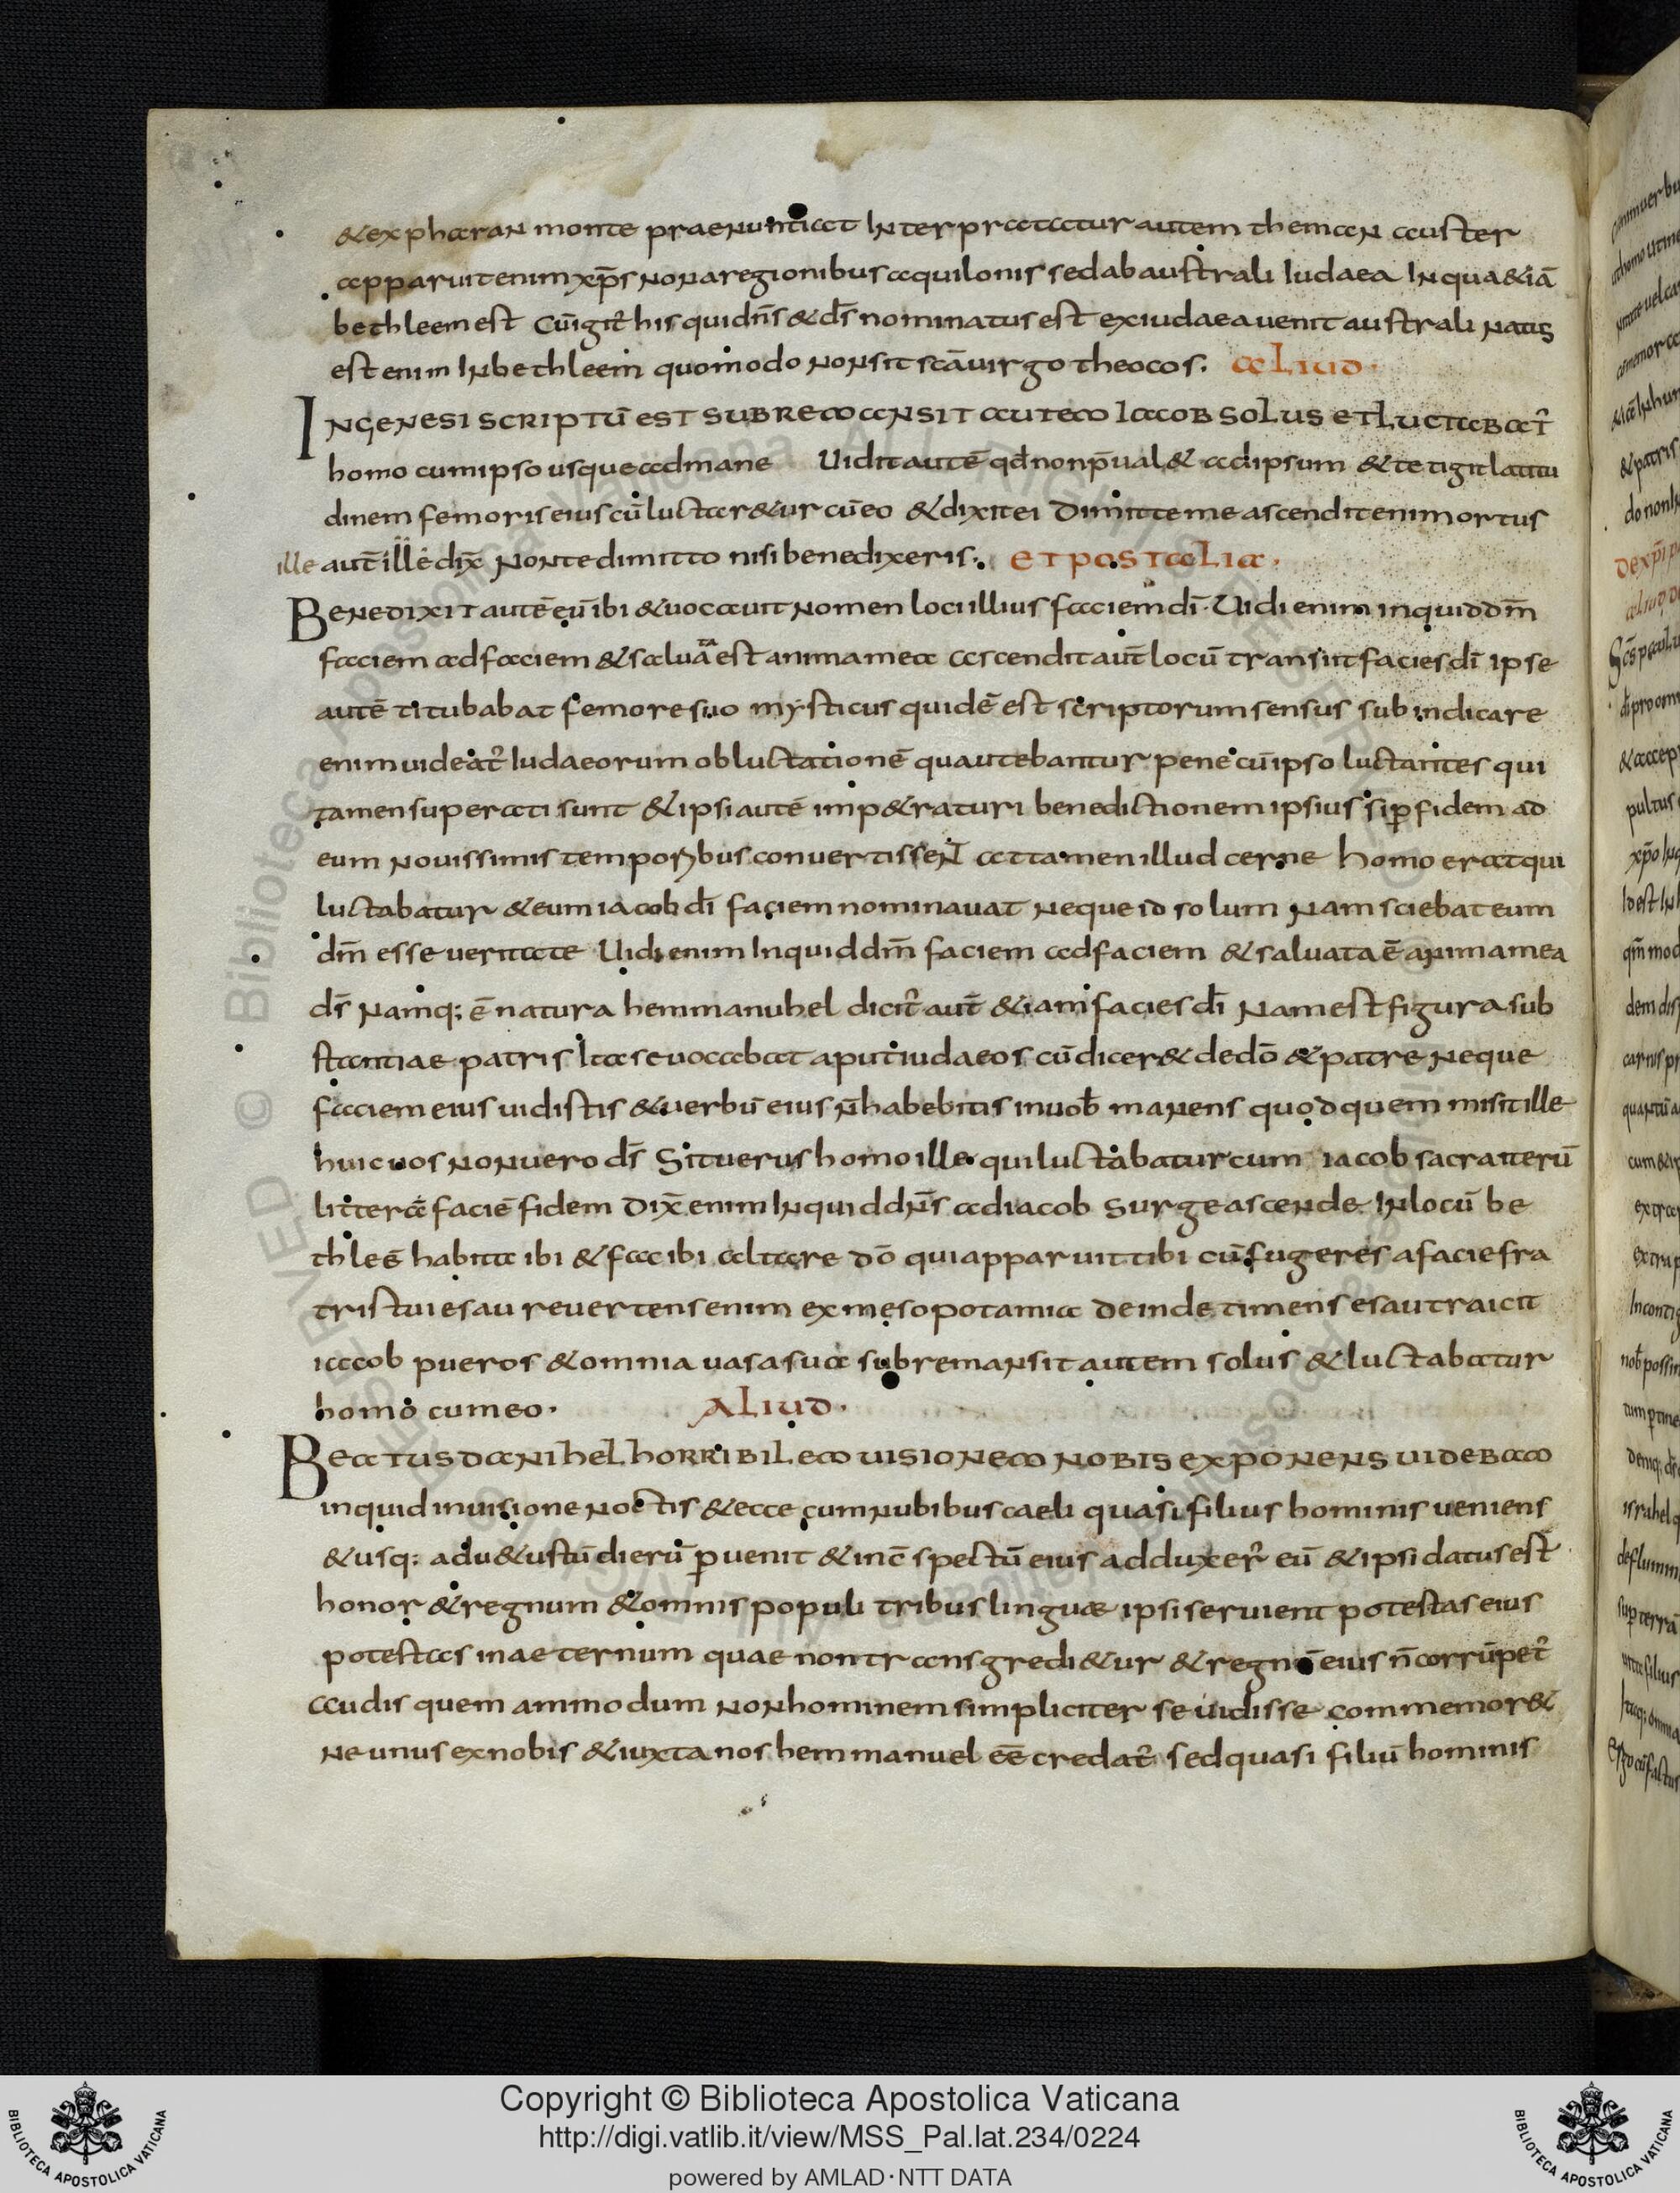 &ex pharan monte praenuntiat Interpraetatur autem theman auster
apparuit enim xp̄s non a regionibus aquilonis sed ab australi Iudaea In qua & iā
bethleem est Cūigit̄ his qui dn̄s & ds̄ nominatus est ex iudaea uenit australi natus
est enim In bethleem quomodo non sit scā uirgo theocos. aliud.
IN GENESI SCRIPTŪ EST SUBREMANSIT AUTEM IACOB SOLUS ET LUCTABAT̄
homo cum ipso usque ad mane Uidit autē qd̄ non p̄ual& ad ipsum & tetigit latitu
dinem femoris eius cū luctar&ur cū eo & dixit ei Dimitte me ascendit enim ortus
ille aut̄ ille dix̄ Non te dimitto nisi benedixeris. ET POST ALIA.
Benedixit autē eū ibi & uocauit nomen loci illius faciem dī Uidi enim inquid dm̄
faciem ad faciem & saluāta est anima mea ascendit aut̄ locū transiit facies dī ipse
autē titubabat femore suo mysticus quidē est scriptorum sensus subindicare
enim uideat̄ Iudaeorum obluctationē qua utebantur pene cū ipso luctantes qui
tamen superati sunt & ipsi autē imp&raturi benedictionem ipsius si p fidem ad
eum nouissimis temporibus conuertissent attamen illud cerne homo erat qui
luctabatur & eum iacob dī faciem nominauat neque id solum nam sciebat eum
dm̄ esse ueritate Uidi enim Inquid dm̄ faciem ad faciem & saluata ē anima mea
ds̄ namq; ē natura hemmanuhel dicit̄ aut̄ & iam facies dī nam est figura sub
stantiae patris Ita se uocabat aput iudaeos cū dicer& de dō & patre neque
faciem eius uidistis & uerbū eius n̄ habebitis in uob̄ manens quod quem misit ille
huic uos non uero ds̄ Sit uerus homo ille qui luctabatur cum iacob sacra iterū
litterae faciē fidem Dix̄ enim Inquid dn̄s ad iacob surge ascende In locū be
thleē habita ibi & fac ibi altare dō qui apparuit tibi cū fugeres a facie fra
tris tui esau reuertens enim ex mesopotamia deinde timens esau traicit
iacob pueros & omnia uasa sua subremansit autem solus & luctabatur
homo cum eo. ALIUD.
BEATUS DANIHEL HORRIBILEM UISIONEM NOBIS EXPONENS UIDEBAM
inquid in uisione noctis & ecce cum nubibus caeli quasi filius hominis ueniens
& usq; ad u&ustū dierū puenit & in c̄spectū eius adduxer̄ eū & ipsi datus est
honor & regnum & omnis populi tribus linguae ipsi seruient potestas eius
potestas in aeternum quae non transgredi&ur & regnū eius n̄ corrūpet̄
Audis quem ammodum non hominem simpliciter se uidisse commemor&
ne unus ex nobis & iuxta nos hemmanuel eē credat̄ sed quasi filiū hominis
Copyright © Biblioteca Apostolica Vaticana
http://digi.vatlib.it/view/MSS_Pal.lat.234/0224
powered by AMLAD·NTT DATA
BIBLIOTECA APOSTOLICA VATICANA
BIBLIOTECA APOSTOLICA VATICANA